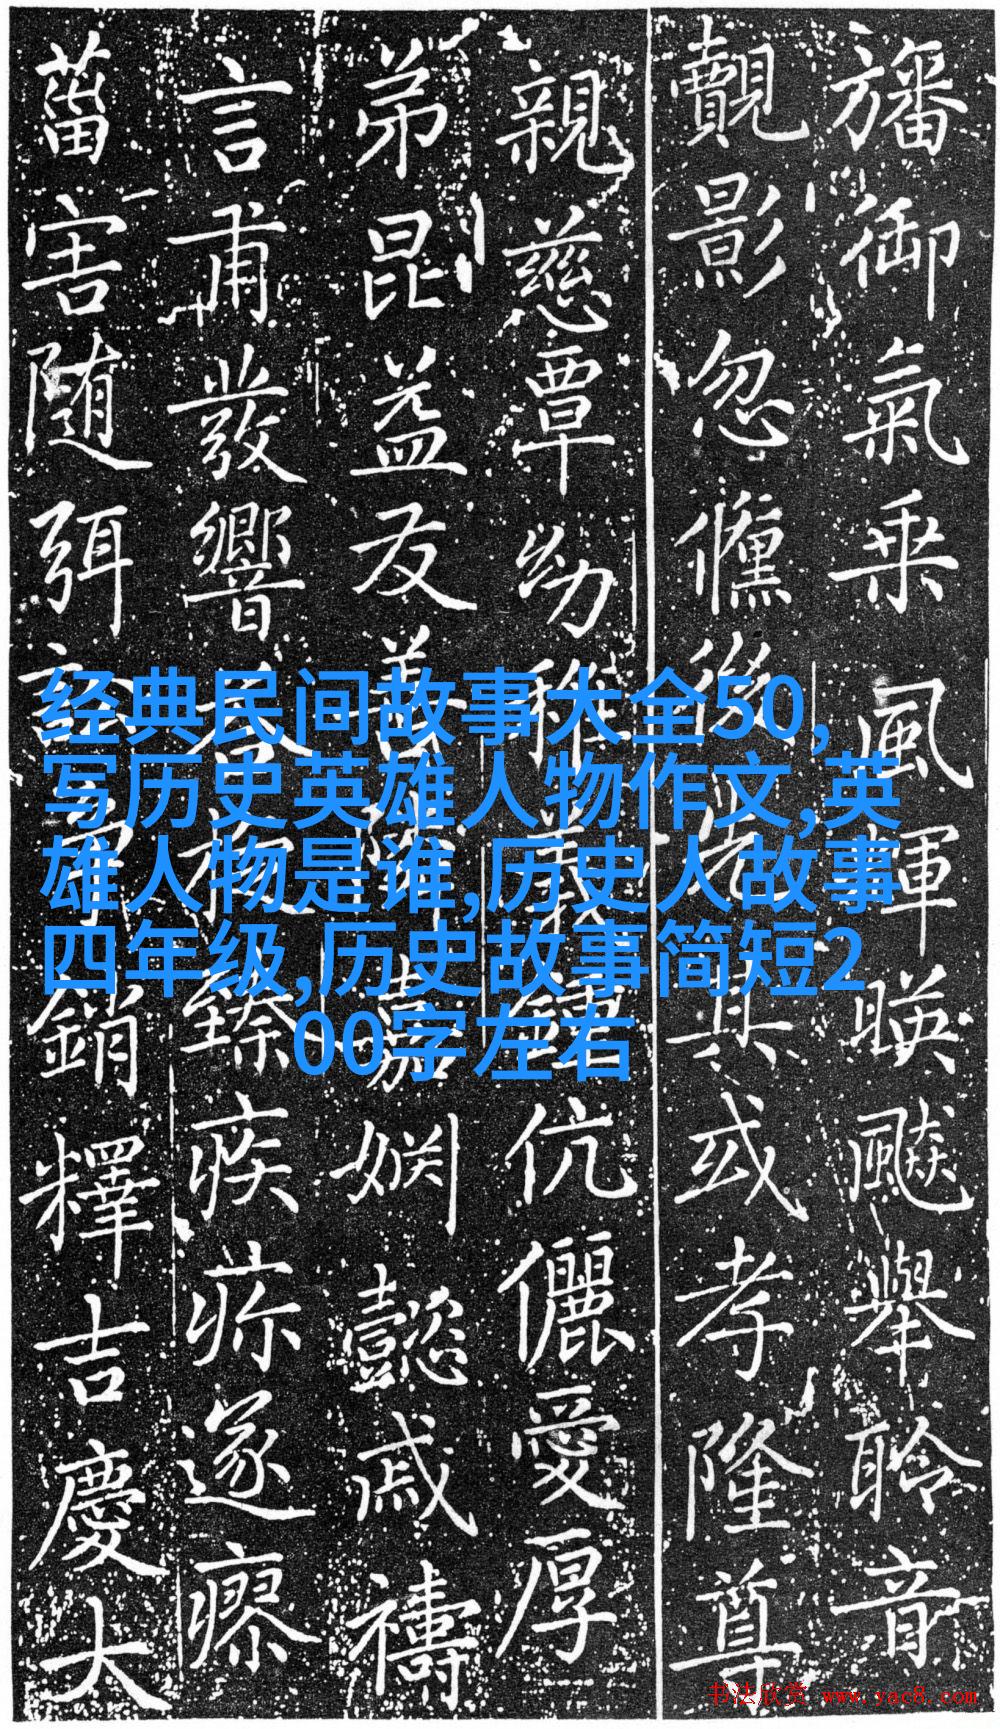 旛御氣乗風輝暎飈舉聆音
覿影忽後先具或孝隆尊
親慈覃幼稚義鍾伉儷愛厚
弟昆益友善隣嘉姻懿戚禱
言甫發響臻疾疹遂瘳
菑害随弭銷釋吉慶大
经典民间故事大全50,
写历史英雄人物作文,英
雄人物是谁,历史人故事
四年级,历史故事简短2
00字左右
书法欣赏 www.yac8.com